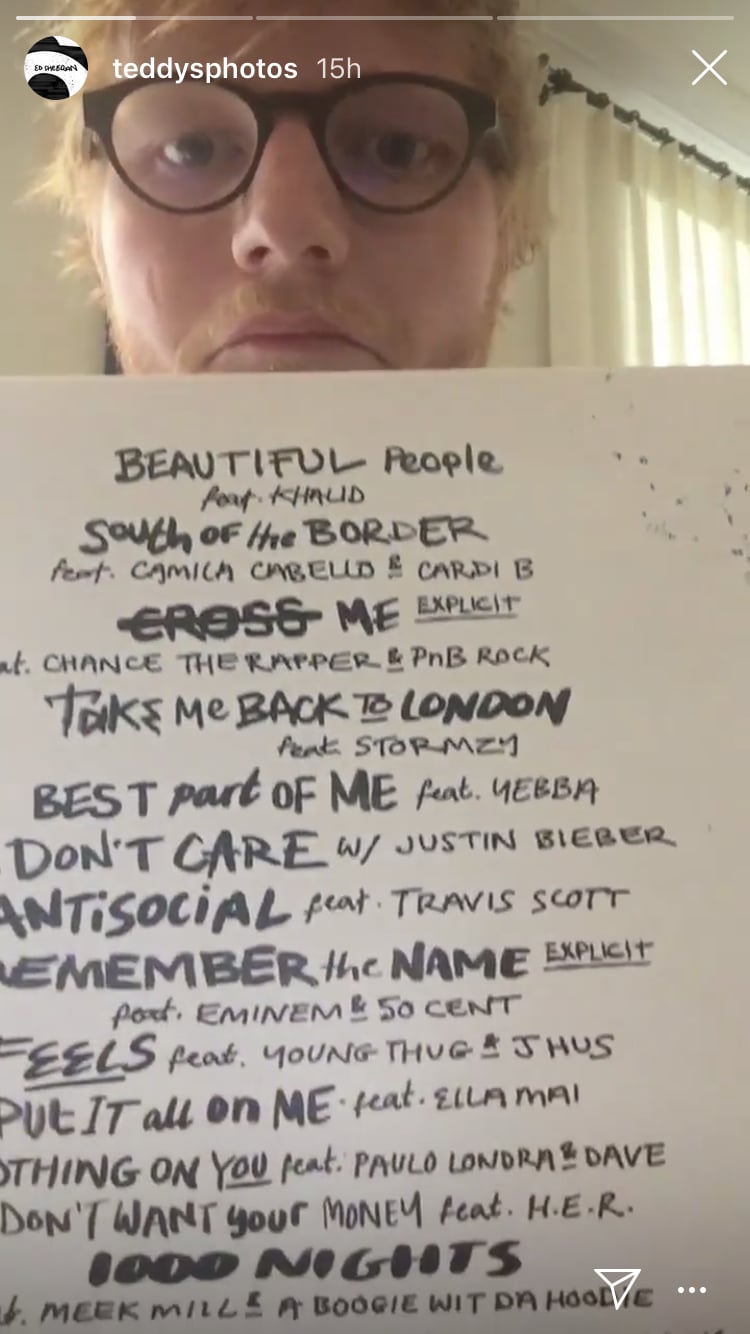 ED SHEERAN
teddysphotos 15h
BEAUTIFUL People
feat. KHALID
South OF the BORDER
feat. CAMILA CABELLO & CARDI B
CROSS ME EXPLICIT
at. CHANCE THE RAPPER & PnB ROCK
Take Me BACK TO LONDON
feat STORMZY
BEST part OF ME feat. YEBBA
DON'T CARE W/ JUSTIN BIEBER
ANTiSOCiAL feat. TRAVIS SCOTT
EMEMBER the NAME EXPLICIT
feat. EMINEM & 50 CENT
FEELS feat. YOUNG THUG & J HUS
PUt IT all on ME. feat. ELLA MAI
OTHING ON YOU feat. PAULO LONDRA & DAVE
DON'T WANT your MONEY feat. H.E.R.
1000 NIGHTS
at. MEEK MILL & A BOOGIE WIT DA HOODIE